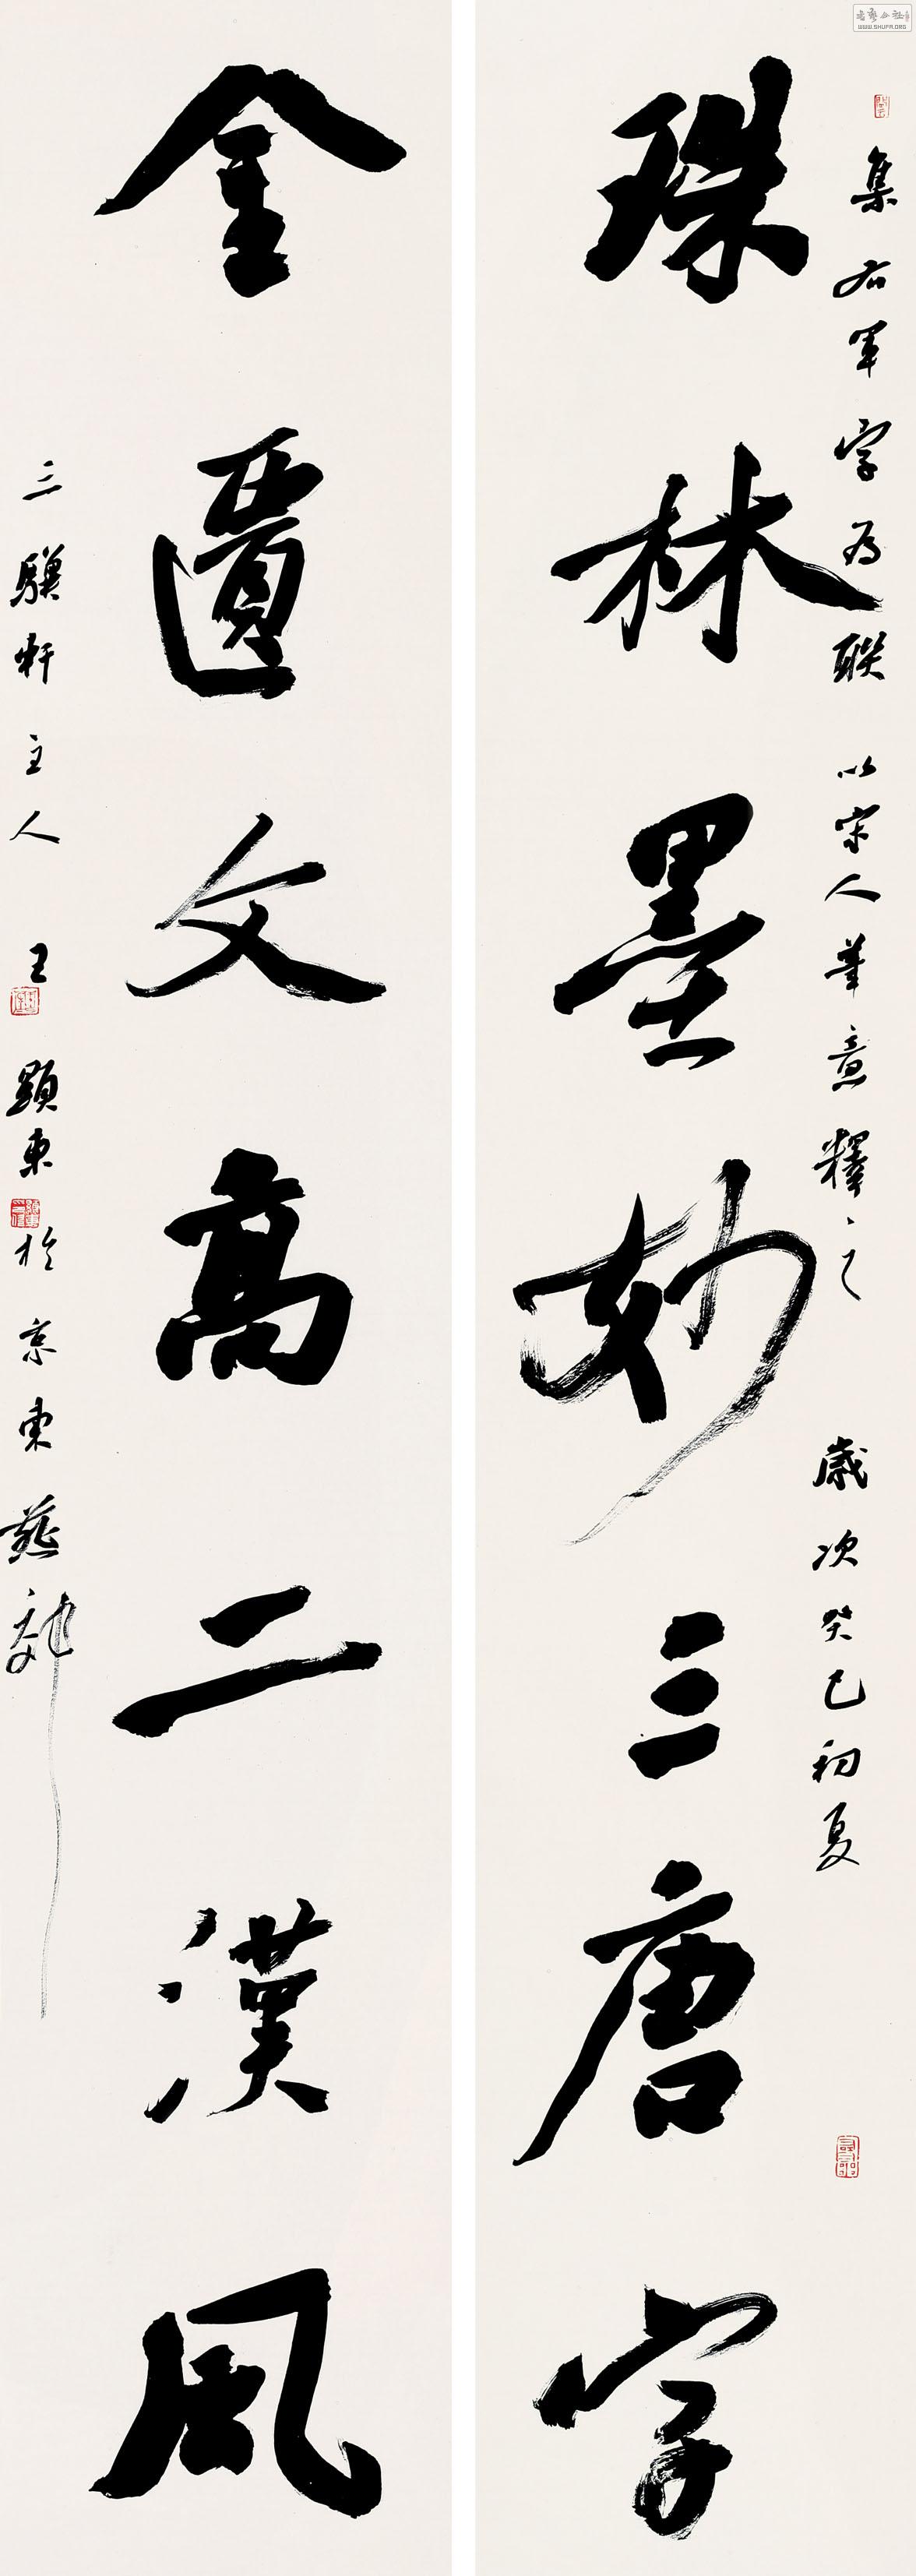 集右軍字為聯以宋人筆意釋之歲次癸巳初夏
珠林墨妙三唐字
金匱文高二漢風
三驥軒主人王顯東於京東燕郊
WWW.SHUFA.ORG